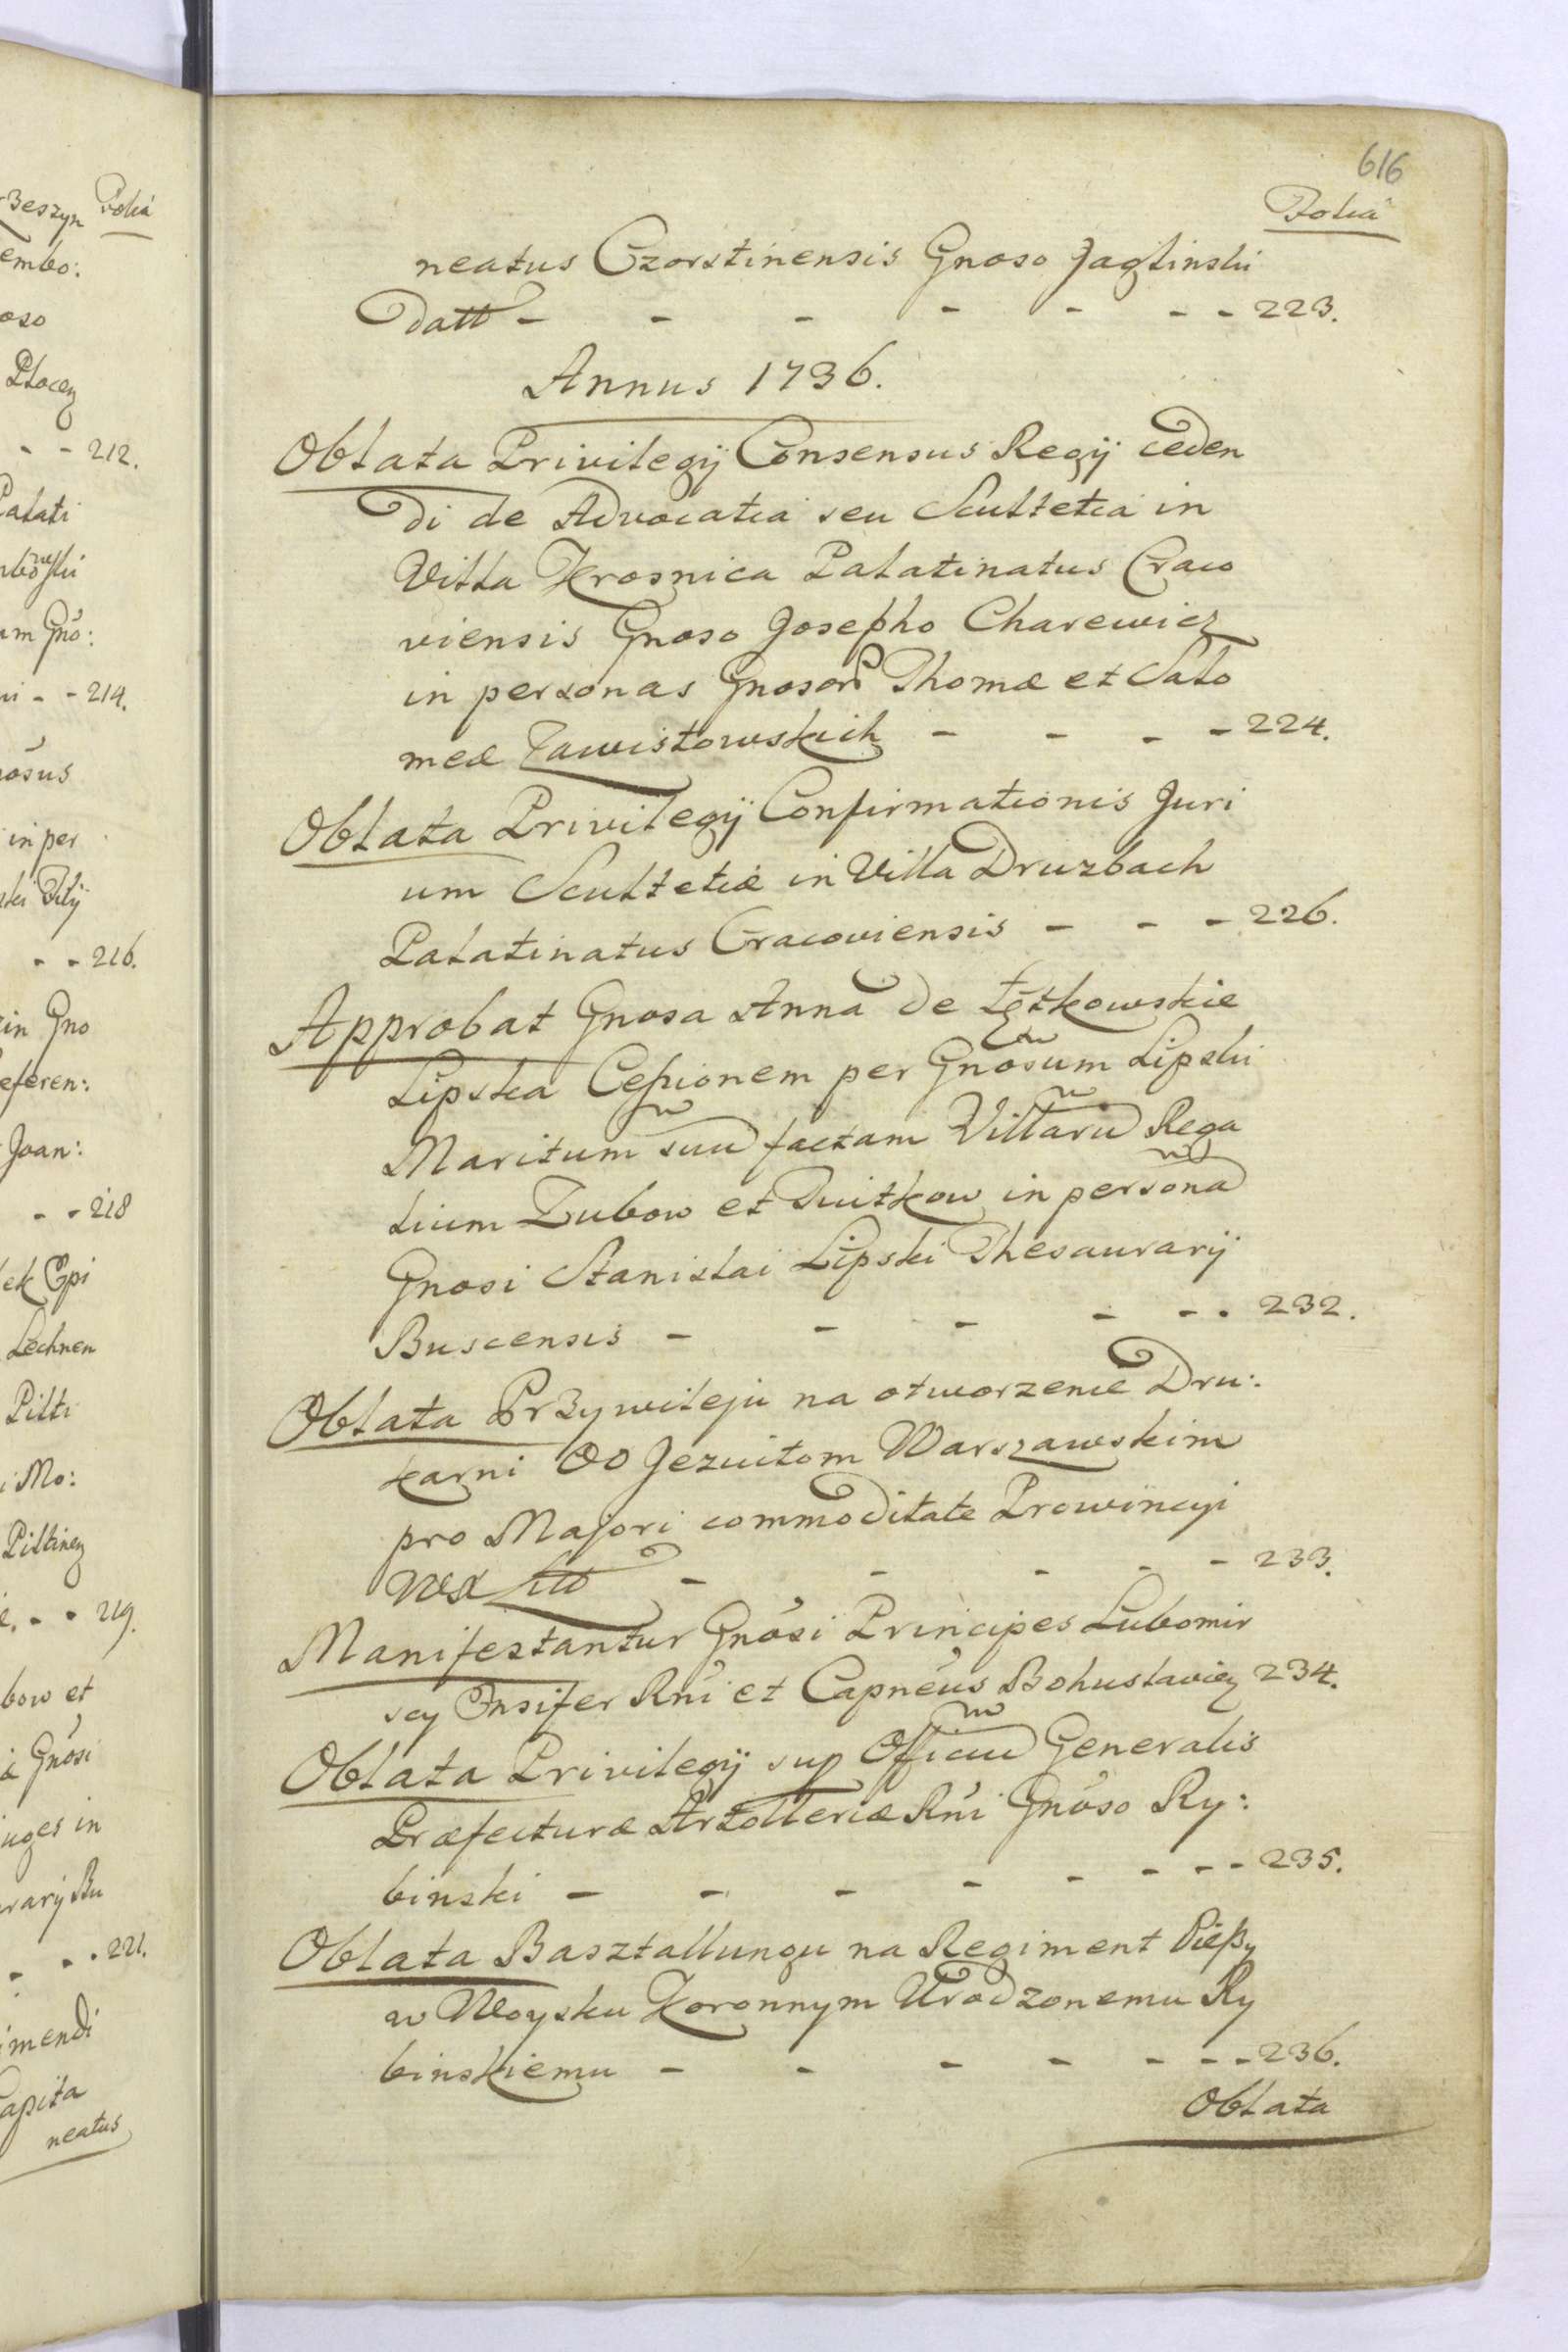 616
Folia
neatus Czorstinensis Gnoso Jaglinski
Datt - - - - - - - 223.
Annus 1736.
Oblata Privilegij Consensus Regij ceden
di de Advocatia seu Scultetia in
Villa Krosnica Palatinatus Craco
viensis Gnoso Josepho Charewicz
in personas Gnosor Thomæ et Salo
meæ Zawistowskich - - - - 224.
Oblata Privilegij Confirmationis Juri
um Scultetiæ in Villa Druzbach
Palatinatus Cracoviensis - - - 226.
Approbat Gnosa Anna de Łętkowskie
Lipska Cessionem per Gnosum Lipski
Maritum suu factam Villaru Rega
lium Zubow et Dwitkow in persona
Gnosi Stanislai Lipski Thesaurarij
Buscensis - - - - - . 232.
Oblata Przywileju na otworzenie Dru:
karni OO Jezuitom Warszawskim
pro Majori commoditate Prowincyi
WX Litt - - - - - 233.
Manifestantur Gnosi Principes Lubomir
scy Ensifer Rni et Capneus Bohuslavien 234.
Oblata Privilegij sup Officiu Generalis
Præfecturæ Artolleriæ Rni Gnoso Ry:
binski - - - - - - - - 235.
Oblata Basztallungu na Regiment Pieszy
w Woysku Koronnym Urodzonemu Ry
binskiemu - - - - - - - 236.
Oblata
rzeszyn Folia
embo:
oso
Plocen
- - 212.
Palati
um Gno:
- - 214.
in per
- - 216.
in Gno
eferen:
Joan:
- - 218
Lechnen
Pilti
Mo:
Piltinen
- - 219.
bow et
Gnosi
iuges in
rarij Bu
- . 221.
imendi
Capita
neatus